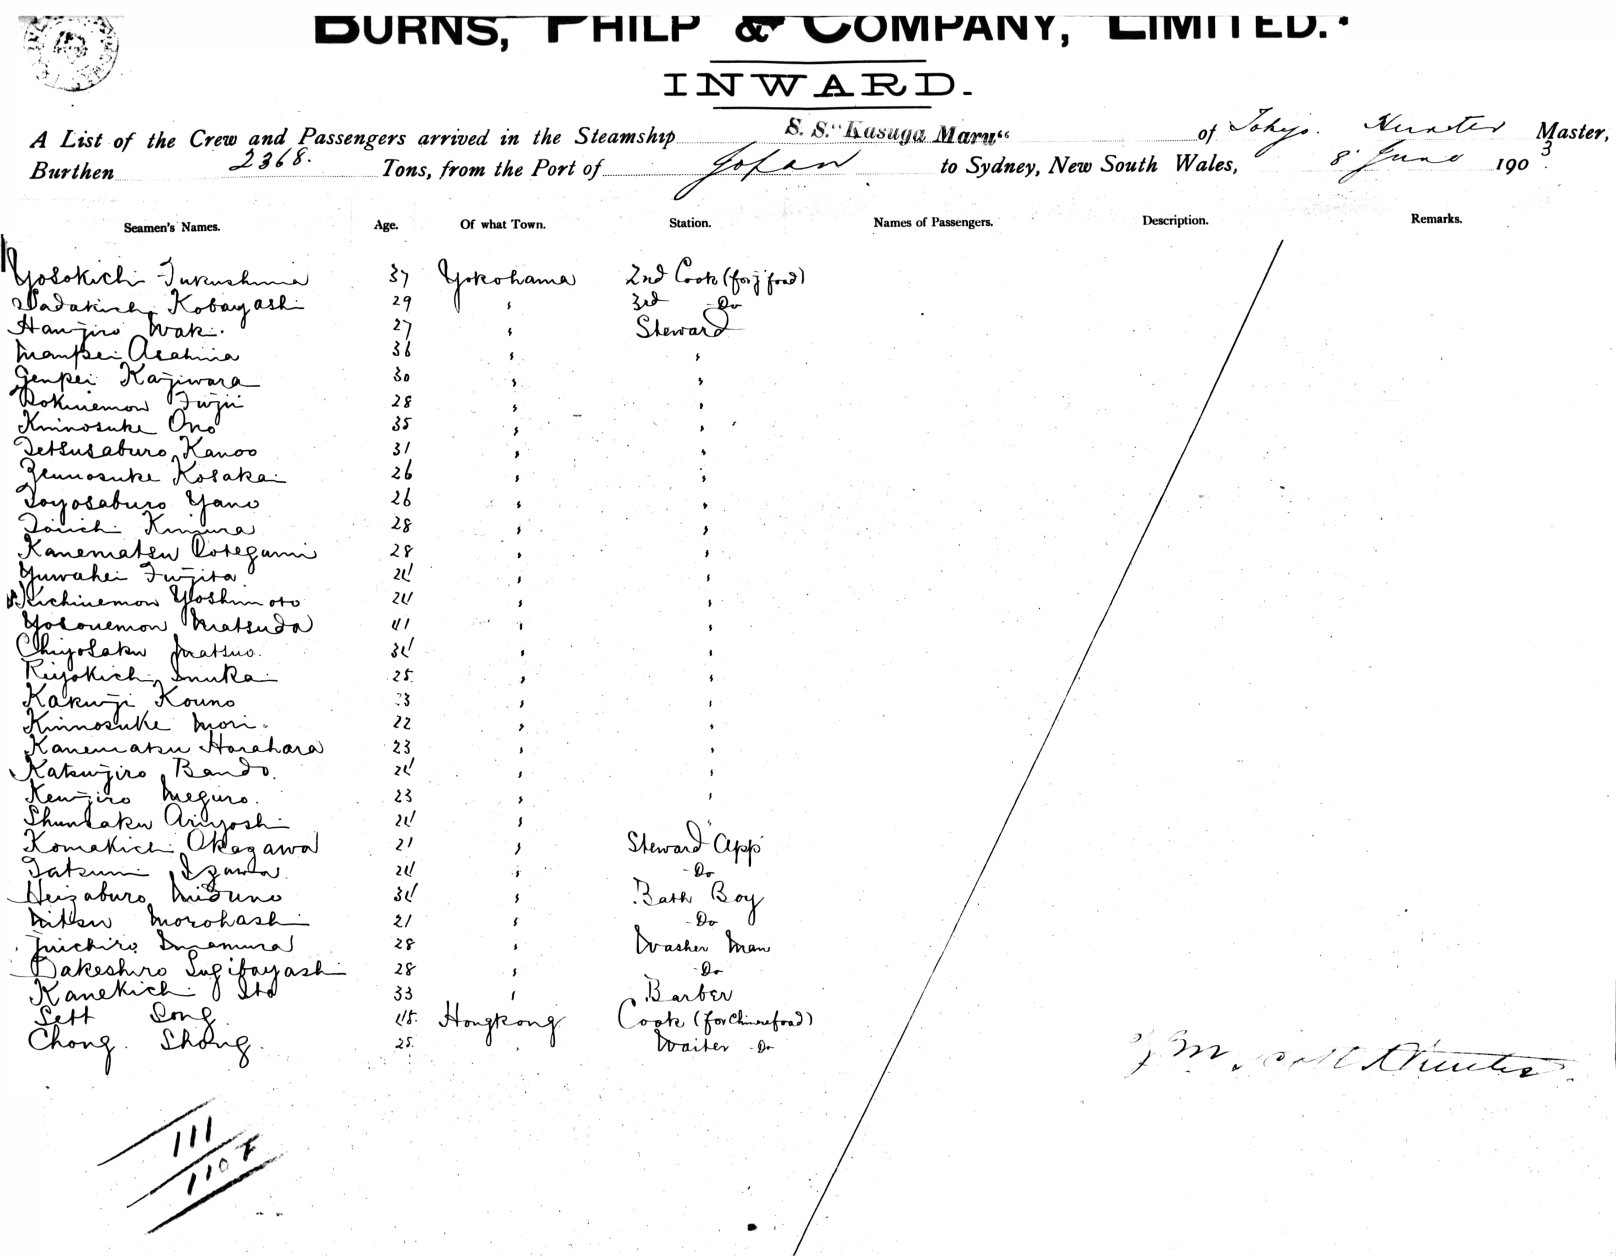 BURNS, PHILP & COMPANY, LIMITED.
INWARD.
A List of the Crew and Passengers arrived in the Steamship S. S. "Kasuga Maru" of Tokyo. Hunter Master,
Burthen 2368. Tons, from the Port of Japan to Sydney, New South Wales, 8 June 1903
Seamen's Names. Age. Of what Town. Station. Names of Passengers. Description. Remarks.
Yosokichi Fukushima 37 Yokohama 2nd Cook (for j food)
Sadakichi Kobayashi 29 " 3rd Do
Hanjiro Waki. 27 " Steward
Manpei Asahina 36 " "
Genpei Kajiwara 30 " "
Rokuemon Fujii 28 " "
Kinnosuke Ono 35 " "
Tetsusaburo Kanoo 31 " "
Zennosuke Kosaka 26 " "
Toyosaburo Yano 26 " "
Toichi Kimura 28 " "
Kanematsu 28 " "
Yuwahei Fujita 24 " "
Kichiuemon Yoshimoto 24 " "
Yosouemon Matsuda 41 " "
Chiyosaku Matsuo. 34 " "
Riyokichi Inukai 25. " "
Kakuji Kouno 23 " "
Kinnosuke Mori. 22 " "
Kanematsu Horahara 23 " "
Katsujiro Bando. 24 " "
Kenjiro Meguro. 23 " "
Shunsaku Ariyoshi 24 " "
Komakichi Okagawa 21 " Steward App
Tatsumi Izawa. 24 " Do
Heizaburo Midzuno 34 " Bath Boy
Mitsu Morohashi 21 " Do
Juichiro Imamura 28 " Washer Man
Takeshiro Sugibayashi 28 " Do
Kanekichi Ito 33 " Barber
Sett Song 45. Hongkong Cook (for Chinese food)
Chong. Shong. 25. " Waiter Do
Hunter
111
110